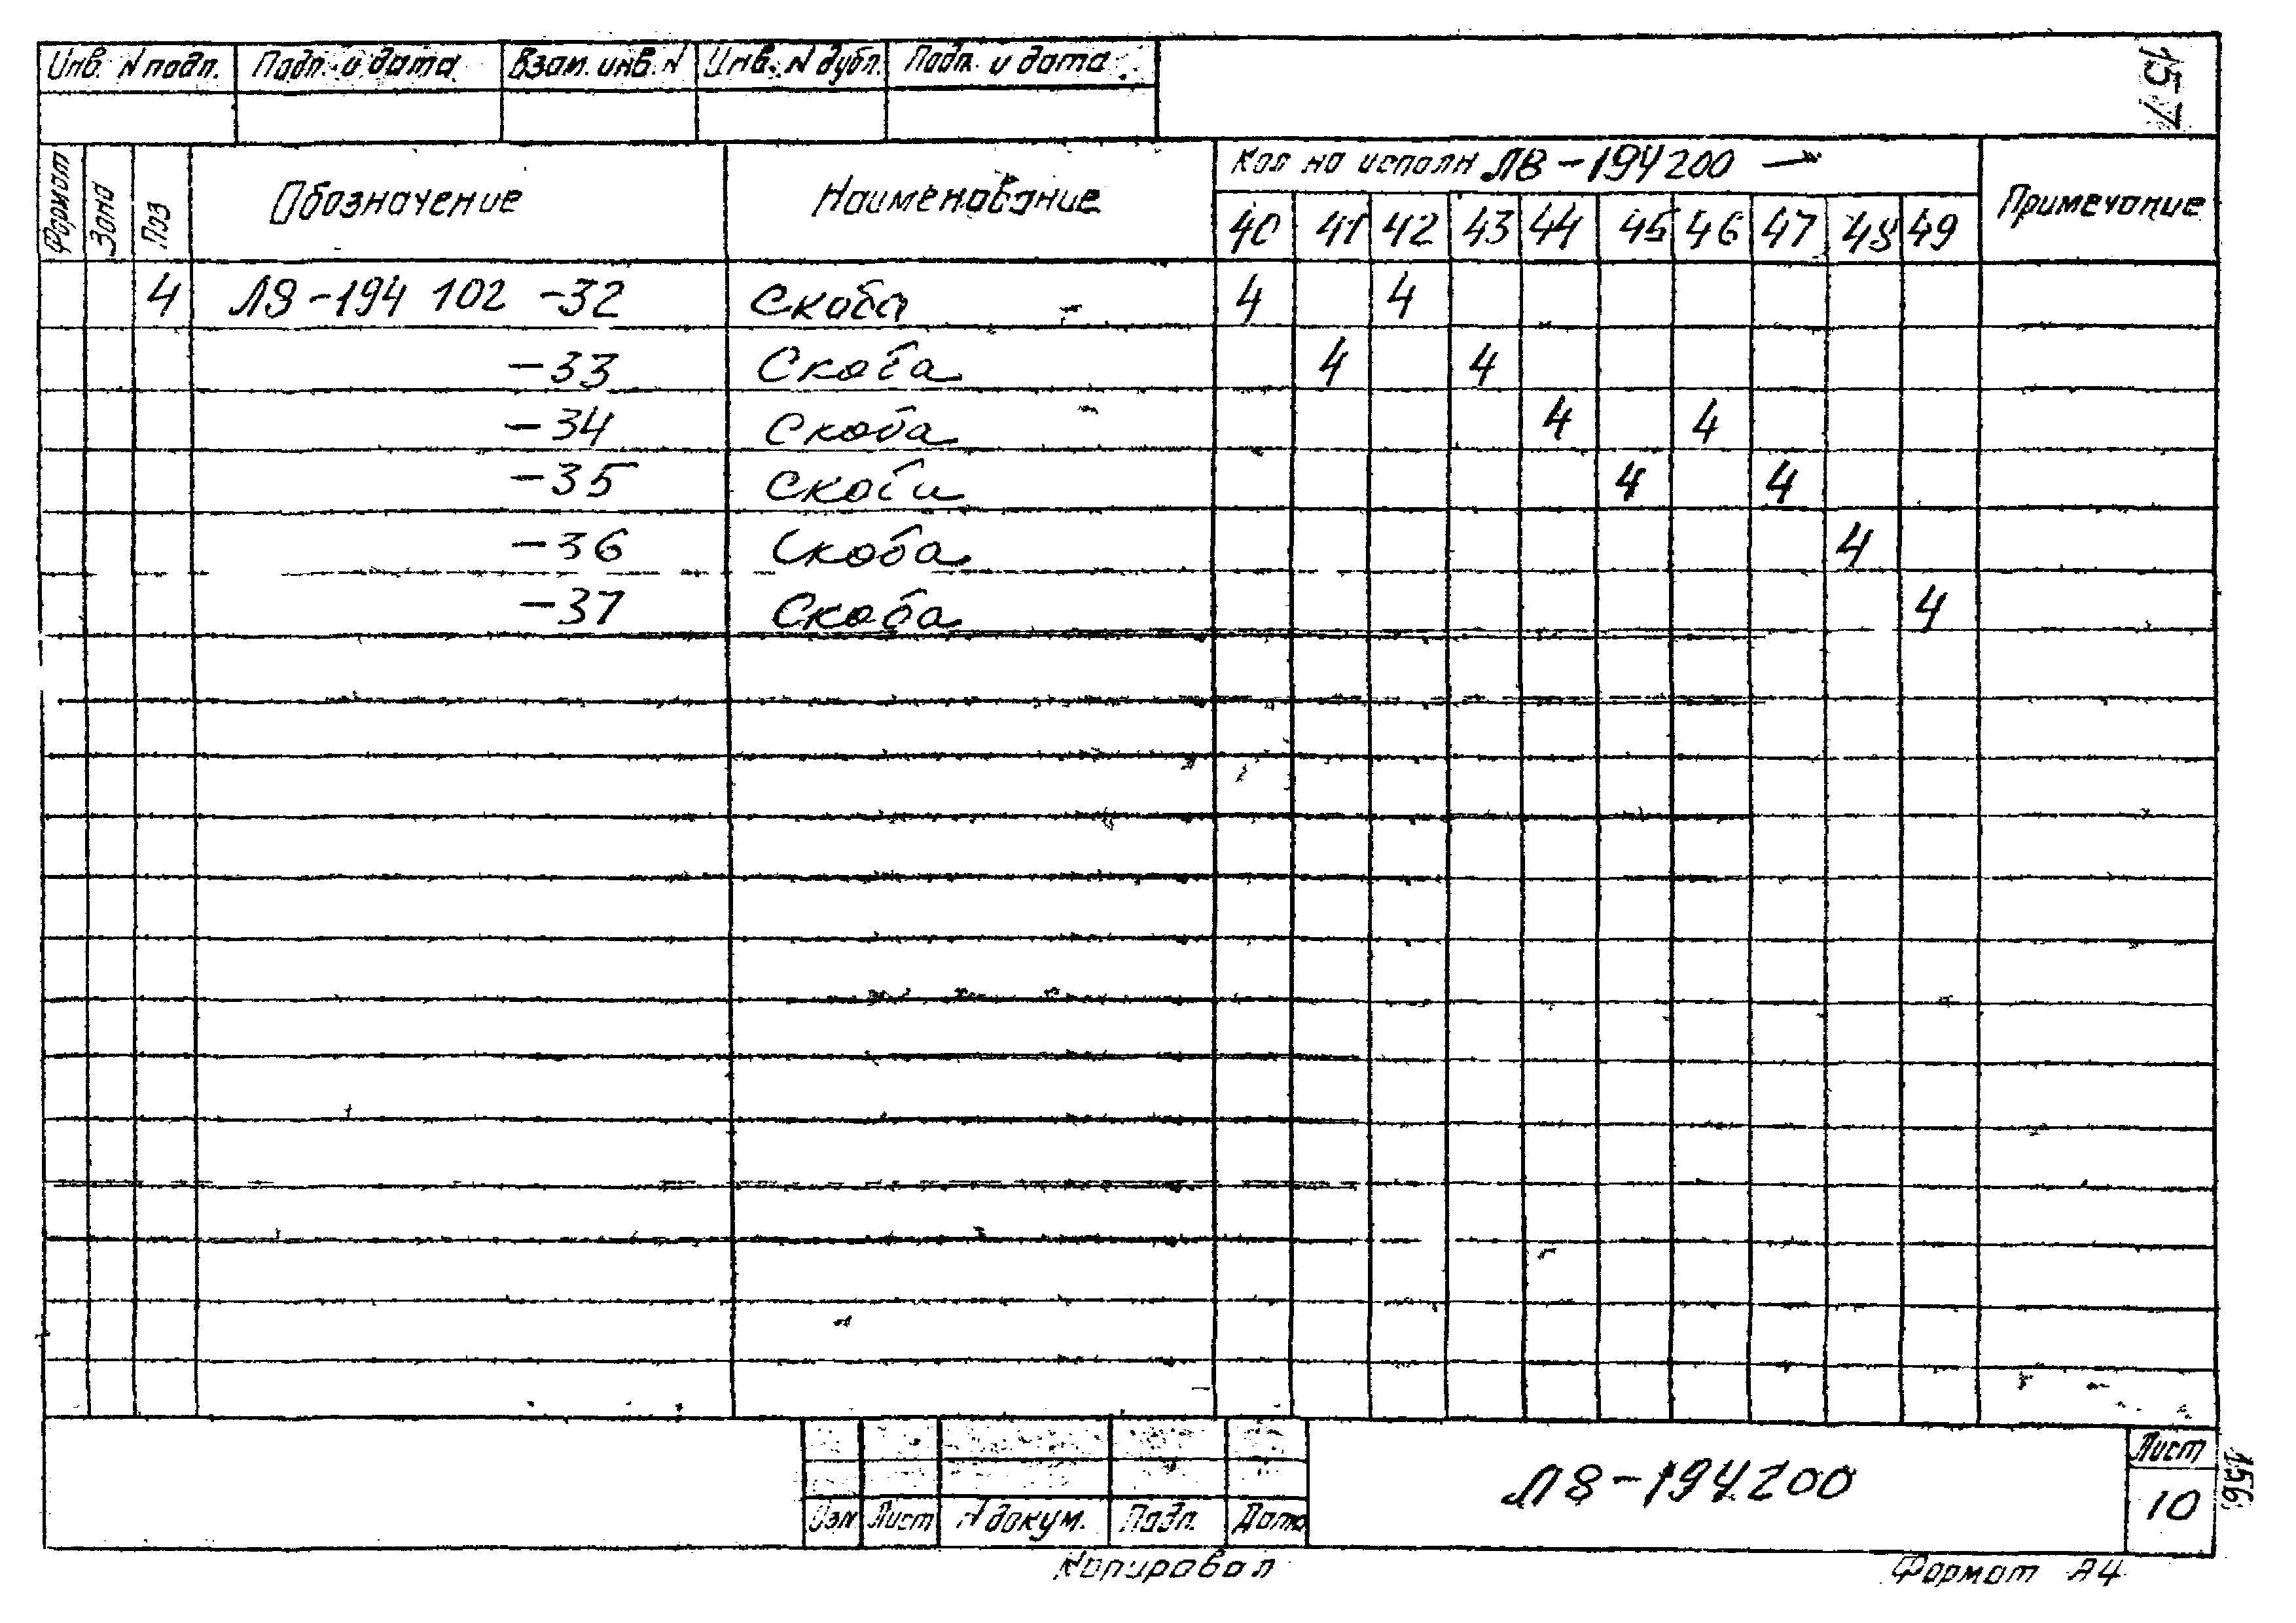 Инв. N подл. Подп. и дата Взам. инв. N Инв. N дубл. Подп. и дата
157
Формат Зона Поз Обозначение Наименование Кол на исполн Л8-194 200 — Примечание
40 41 42 43 44 45 46 47 48 49
4 Л8-194 102 -32 Скоба 4 4
-33 Скоба 4 4
-34 Скоба 4 4
-35 Скоба 4 4
-36 Скоба 4
-37 Скоба 4
Изм Лист N докум. Подп. Дата
Л8-194.200
Лист
10
156
Копировал Формат А4